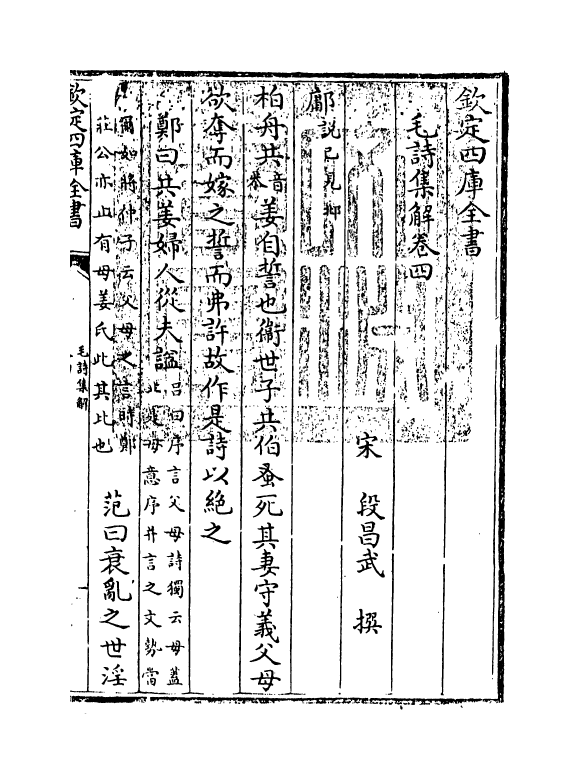 欽定四庫全書
毛詩集解卷四
宋 段昌武 撰
鄘說已見邶
柏舟共音恭姜自誓也衛世子共伯蚤死其妻守義父母
欲奪而嫁之誓而弗許故作是詩以絕之
鄭曰共姜婦人從夫諡
呂曰序言父母詩獨云母蓋
是母意序并言之文勢當
爾如將仲子云父母之言時鄭
莊公亦止有母姜氏此其比也
范曰衰亂之世淫
欽定四庫全書
毛詩集解